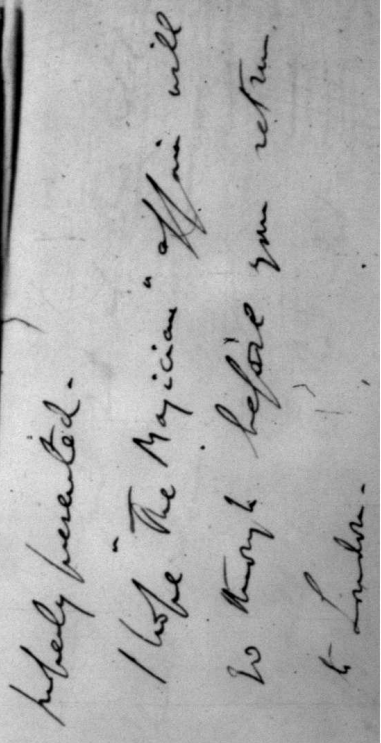 properly presented.
I hope "The Magician" affair will
go through before you return
to London.